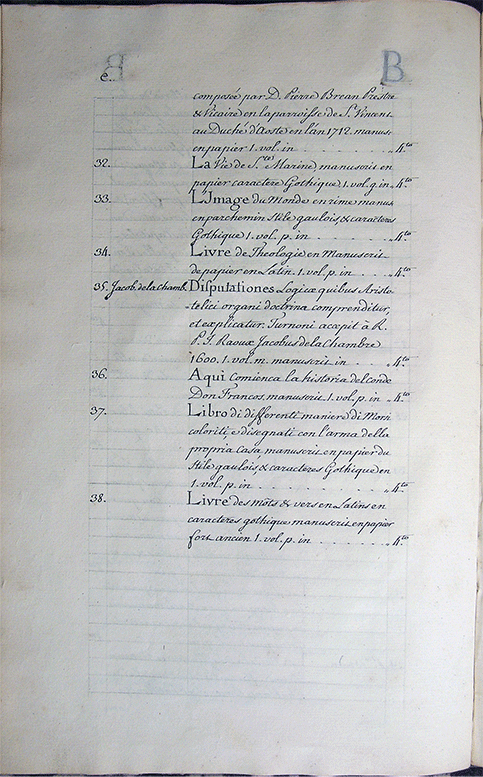 B
e
composée par D. Pierre Brean Prêstre
& Vicaire en la parroisse de S. Vincent
au Duché d'Aoste en l'án 1712. manusc
en papier 1. vol. in . . . . . . . 4.to
32. La Vie de S.te Marine, manuscris en
papier caractere Gothique 1. vol. g. in 4.to
33. L'Jmage du Monde en rime manus
en parchemin Stile gaulois, & caracteres
Gothique 1. vol. p. in . . . . . . 4.to
34. Livre de Theologie en Manuscris
de papier en Latin. 1. vol. p. in . . . 4.to
35. Jacob. de la Chamb. Disputationes Logicæ quibus Aristo-
telici organi doctrina comprenditur,
et explicatur. Turnoni accepit à R.
P. J. Raoux Jacobus de la Chambre
1600. 1. vol. m. manuscris in . . . 4.to
36. Aqui comienca la historia del conde
Don Francos, manuscris 1. vol. p. in 4.to
37. Libro di differenti maniere di Mori
coloriti, e disegnati con l'arma della
propria Casa, manuscris en papier du
Stile gaulois, & caracteres Gothique en
1. vol. p. in . . . . . . . 4.to
38. Livre des môts & vers en Latins en
caracteres gothique manuscris en papier
fort ancien 1. vol. p. in . . . . . 4.to